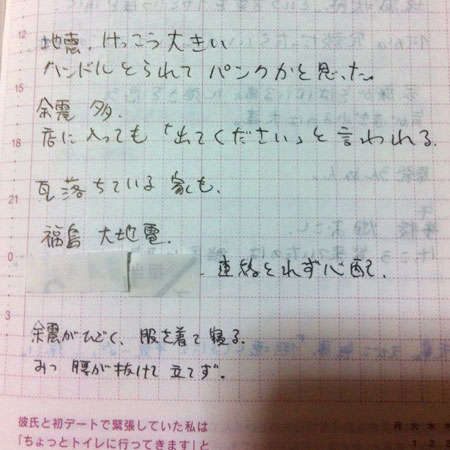 12
地震、けっこう大きい
ハンドルとられて パンクかと思った。
15
余震 多.
店に入っても「出てください」と言われる.
18
瓦落ちている家も.
21
福島 大地震.
0
連絡とれず心配.
3
余震がひどく、服を着て寝る.
みっ 腰が抜けて立てず.
彼氏と初デートで緊張していた私は
「ちょっとトイレに行ってきます」と
月 火 水 木
1 2 3